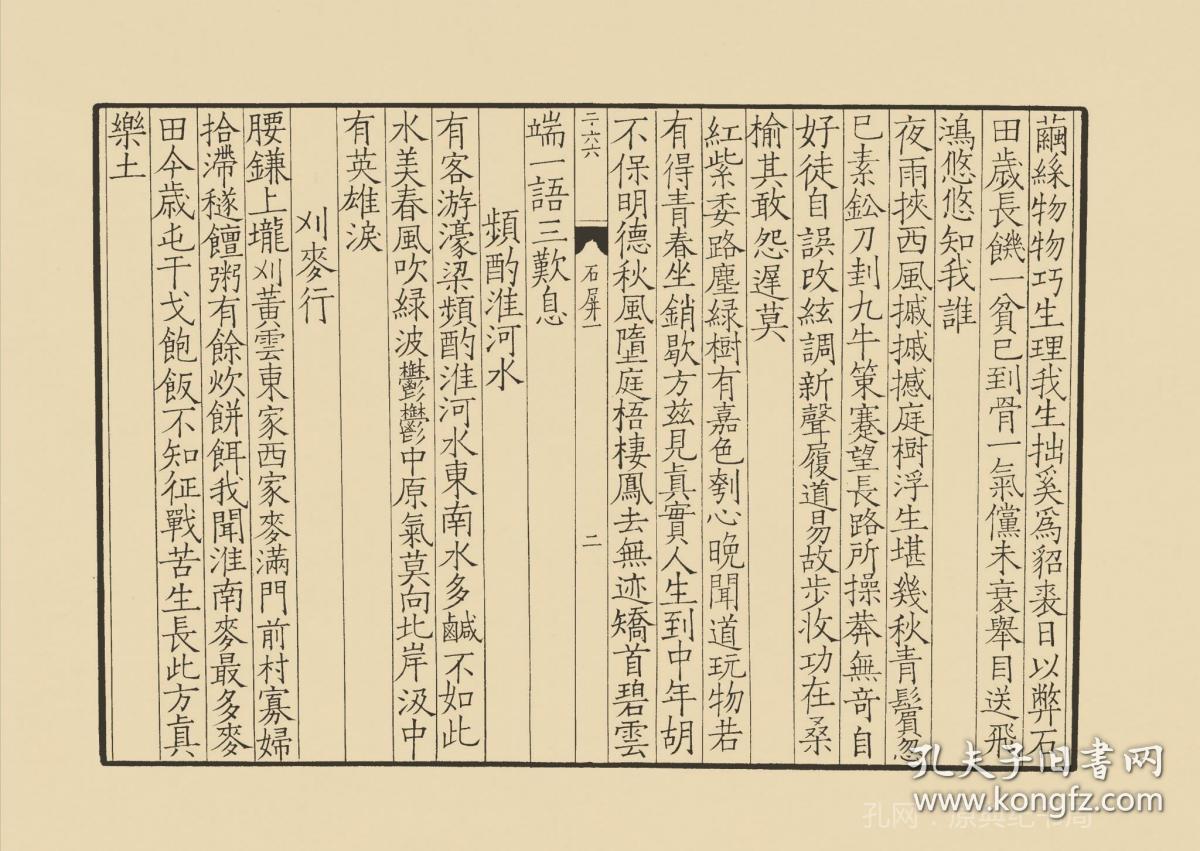 繭絲物物巧生理我生拙奚爲貂裘日以弊石
田歲長饑一貧已到骨一氣儻未衰舉目送飛
鴻悠悠知我誰
夜雨挾西風摵摵撼庭樹浮生堪幾秋青鬢忽
已素鈆刀刲九牛策蹇望長路所操莽無竒自
好徒自誤改絃調新聲履道易故步收功在桑
榆其敢怨遲莫
紅紫委路塵綠樹有嘉色刳心晚聞道玩物若
有得青春坐銷歇方兹見眞實人生到中年胡
不保明德秋風墮庭梧棲鳳去無迹矯首碧雲
二·六六
石屛一
二
端一語三歎息
頻酌淮河水
有客游濠梁頻酌淮河水東南水多鹹不如此
水美春風吹綠波鬱鬱中原氣莫向北岸汲中
有英雄淚
刈麥行
腰鎌上壠刈黃雲東家西家麥滿門前村寡婦
拾滯穟饘粥有餘炊餅餌我聞淮南麥最多麥
田今歲屯干戈飽飯不知征戰苦生長此方眞
樂土
孔夫子旧书网
www.kongfz.com
孔网：原典纪书局